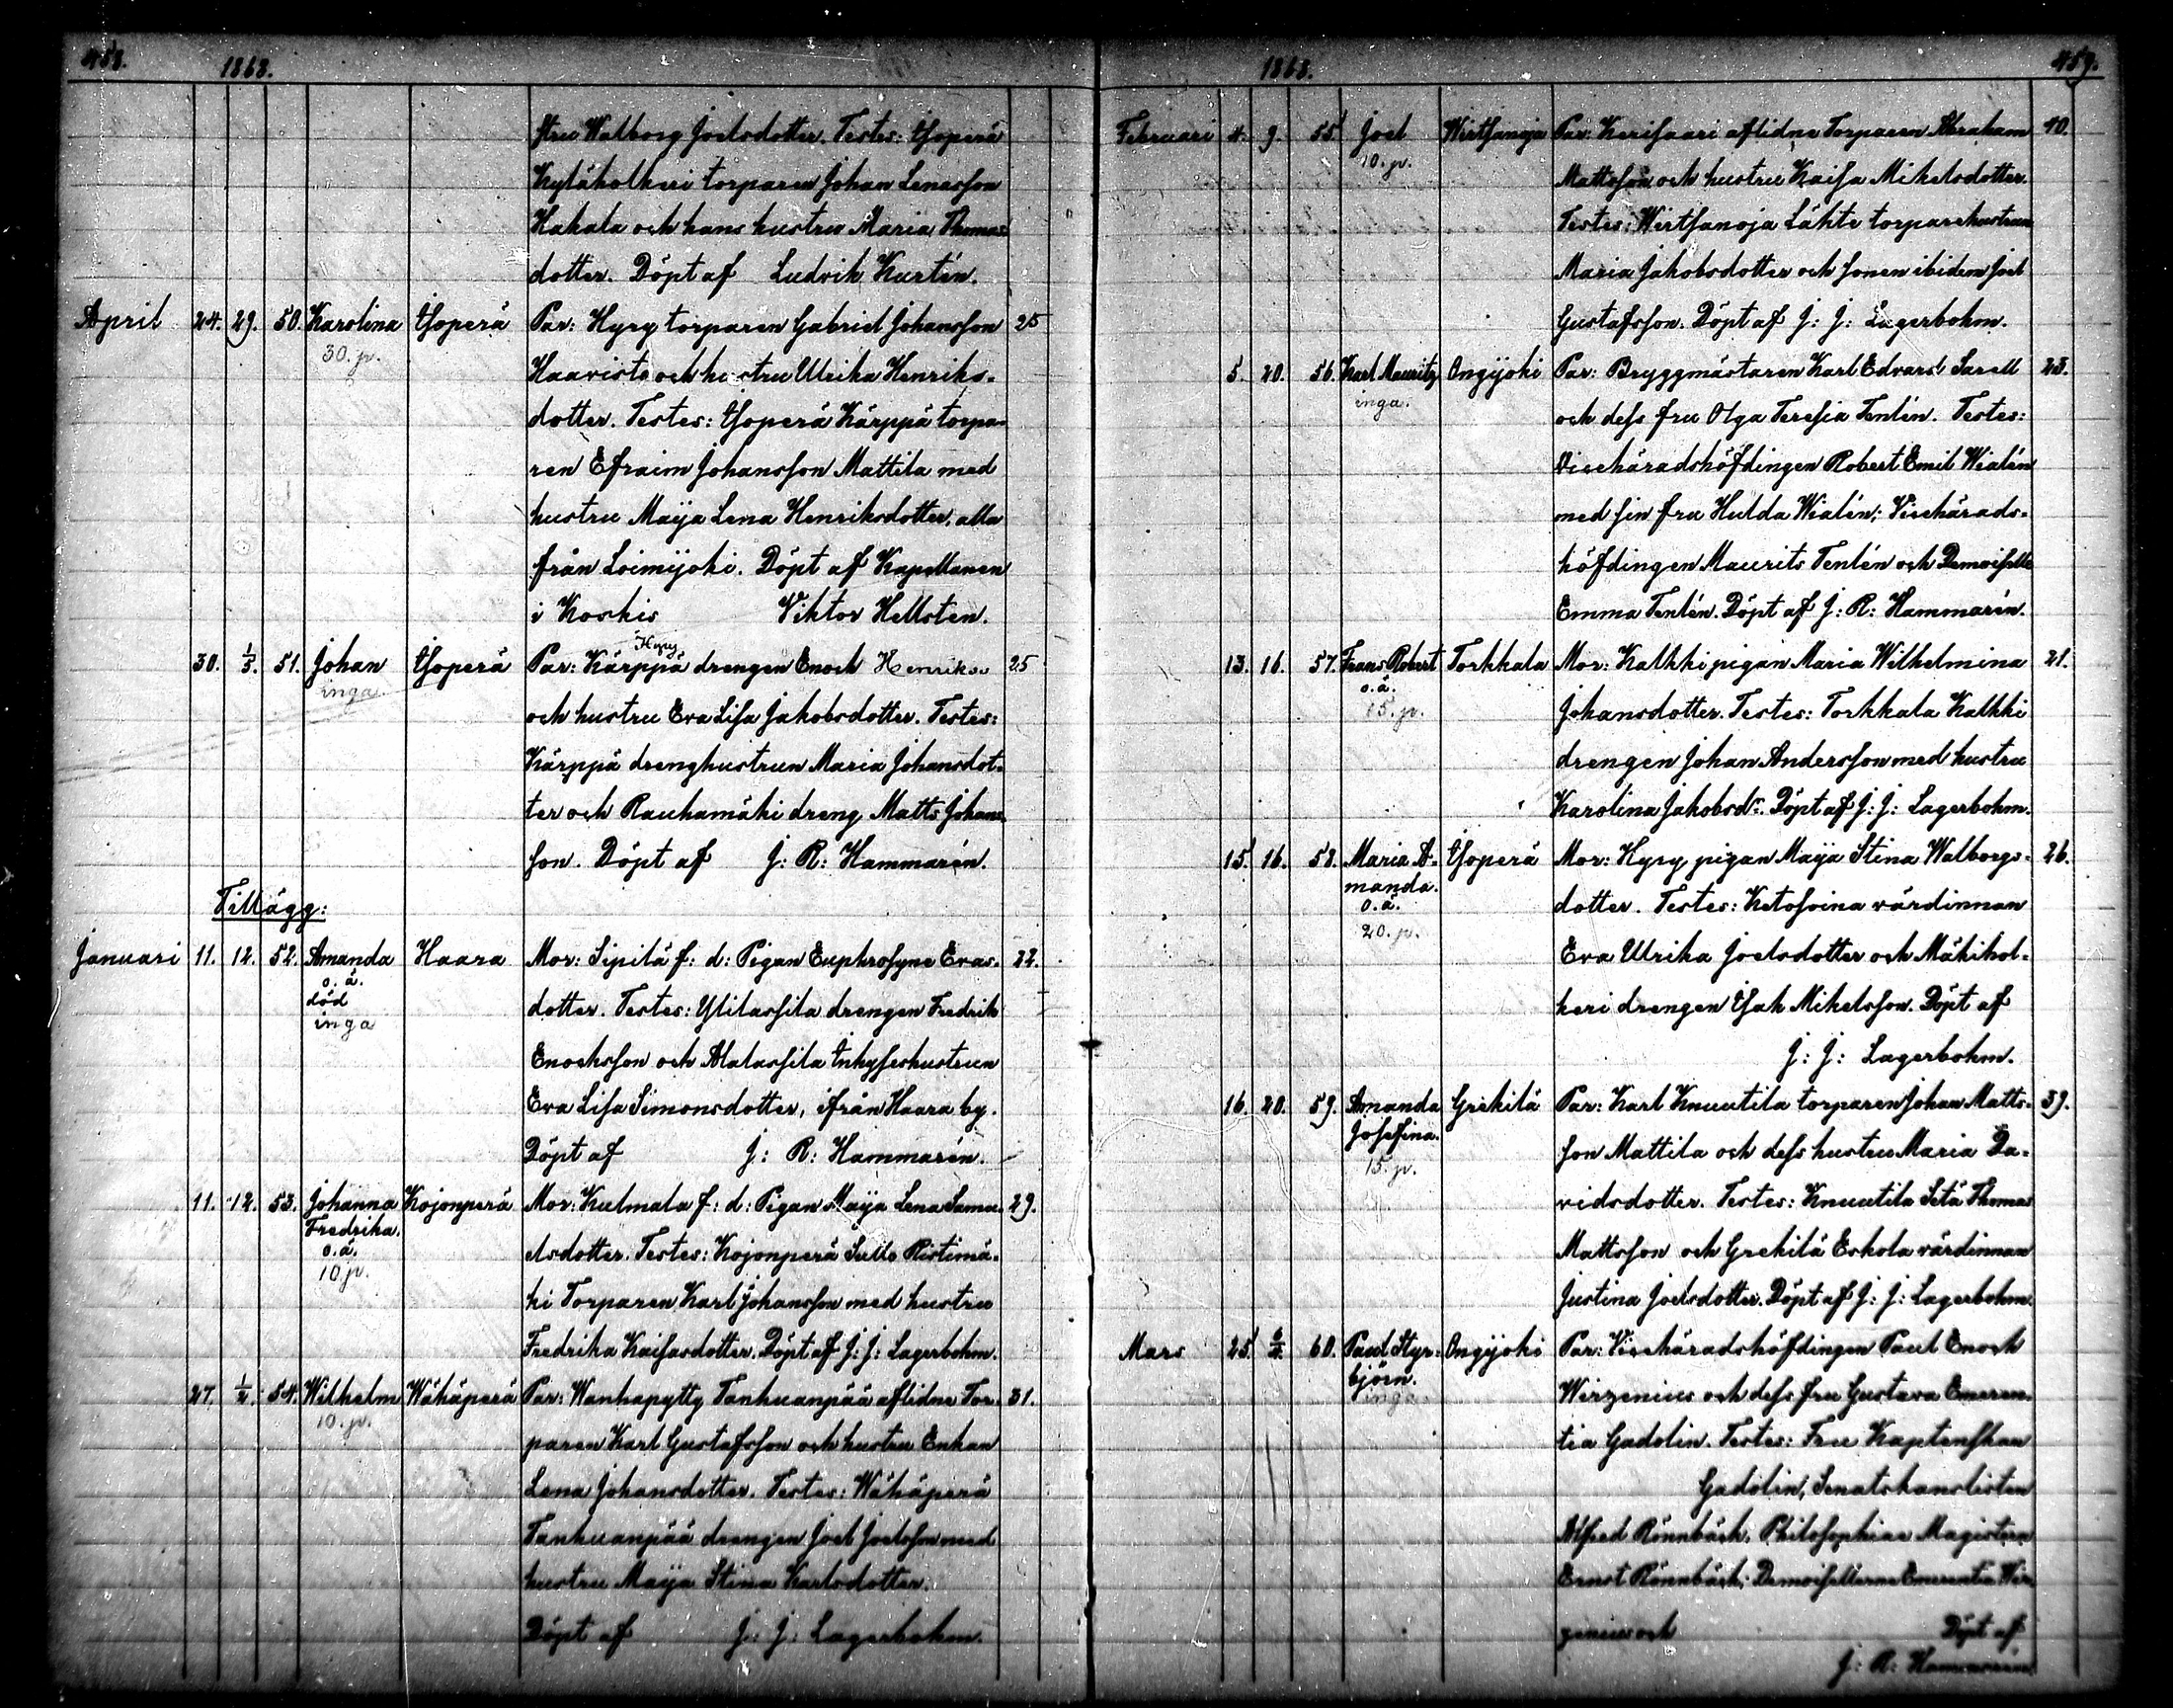 458. 1868.
stru Walborg Joelsdotter. Testes: Isoperä
Kyläkolkeri torparen Johan Lenasson
Kakala och hans hustru Maria Thomas
dotter. Döpt af Ludvik Kurtén.
April 24. 29. 50. Karolina Isoperä Par: Hyry torparen Gabriel Johansson 25
30. p. Haavisto och hustru Ulrika Henriks-
dotter. Testes: Isoperä Kärppä torpa-
ren Efraim Johansson Mattila med
hustru Maija Lena Henriksdotter, alla
från Loimijoki. Döpt af Kapellanen
i Koskis Viktor Hellsten.
Hyry
30. 1/5. 51. Johan Isoperä Par: Kärppä drengen Enock Henriks. 25
inga. och hustru Eva Lisa Jakobsdotter. Testes:
Kärppä drenghustrun Maria Johansdot-
ter och Rauhamäki dreng Matts Johans
son. Döpt af J: R: Hammarén.
Tillägg:
Januari 11. 12. 52. Amanda Haara Mor: Sipilä f: d: Pigan Euphrosyne Evas- 22.
o. ä.
död dotter. Testes: Ylitassila drengen Fredrik
inga
Enocksson och Alatassila Inhyseshustrun
Eva Lisa Simonsdotter, ifrån Haara by.
Döpt af J: R: Hammarén.
11. 12. 53. Johanna Kojonperä Mor: Kulmala f: d: Pigan Maija Lena Samu- 29.
Fredrika.
o. ä. elsdotter. Testes: Kojonperä Sullo Ristimä-
10 p.
ki Torparen Karl Johansson med hustru
Fredrika Kaisasdotter. Döpt af J: J: Lagerbohm.
27. 1/2. 54. Wilhelm Wähäperä Par: Wanhapytty Tanhuanpää aflidne Tor- 31.
10. p. paren Karl Gustafsson och hustru Enkan
Lena Johansdotter. Testes: Wähäperä
Tanhuanpää drengen Joel Joelsson med
hustru Maija Stina Karlsdotter.
Döpt af J: J: Lagerbohm.
1868. 459.
Februari 4. 9. 55. Joel Wirtsanoja Par: Kerisaari aflidne Torparen Abraham 40.
10. p. Mattsson och hustru Kaisa Mikelsdotter.
Testes: Wirtsanoja Lähte torparehustrun
Maria Jakobsdotter och sonen ibidem Joel
Gustafsson. Döpt af J: J: Lagerbohm.
5. 20. 56. Karl Mauritz Ongijoki Par: Bryggmästaren Karl Edvard Sarell 23.
inga. och dess fru Olga Teresia Tenlén. Testes:
Vicehäradshöfdingen Robert Emil Wialén
med sin fru Hulda Wialén; Vicehärads-
höfdingen Maurits Tenlén och Demoiselle
Emma Tenlén. Döpt af J: R: Hammarén.
13. 16. 57. Frans Robert Torkkala Mor: Kalkki pigan Maria Wilhelmina 21.
o. ä.
15. p. Johansdotter. Testes: Torkkala Kalkki
drengen Johan Andersson med hustru
Karolina Jakobsdr. Döpt af J: J: Lagerbohm.
15. 16. 58. Maria A- Isoperä Mor: Hyry pigan Maija Stina Walborgs- 26.
manda.
o. ä. dotter. Testes: Ketosoina värdinnan
20. p.
Eva Ulrika Joelsdotter och Mäkikol-
keri drengen Isak Mikelsson. Döpt af
J: J: Lagerbohm.
16. 20. 59. Amanda Grekilä Par: Karl Knuutila torparen Johan Matts- 39.
Josefina.
15. p. son Mattila och dess hustru Maria Da-
vidsdotter. Testes: Knuutila Setä Thomas
Mattsson och Grekilä Eskola värdinnan
Justina Joelsdotter. Döpt af J: J: Lagerbohm.
Mars 25. 6/4. 60. Paul Styr- Ongijoki Par: Vicehäradshöfdingen Paul Enock
björn.
inga Wirzenius och dess fru Gustava Emeren-
tia Gadolin. Testes: Fru Kaptenskan
Gadolin, Senatskanslisten
Alfred Rönnbäck, Philosophiae Magistern
Ernst Rönnbäck, Demoisellerne Emerentia Wir
zenius och Döpt af
J: R: Hammarén